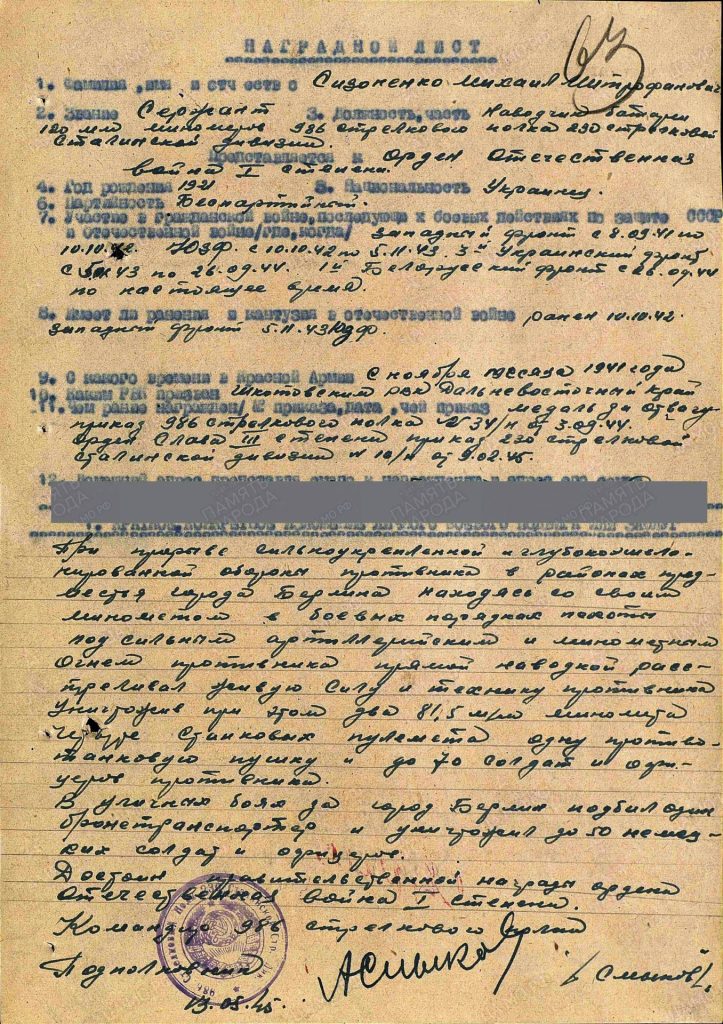 67
НАГРАДНОЙ ЛИСТ
1. Фамилия, имя и отчество Сизоненко Михаил Митрофанович
2. Звание Сержант 3. Должность, часть Наводчик батареи
120 м/м минометов 986 стрелкового полка 230 стрелковой
Сталинской дивизии.
Представляется к Орден Отечественная
война I степени.
4. Год рождения 1921 5. Национальность Украинец.
6. Партийность Беспартийный.
7. Участие в гражданской войне, последующих боевых действиях по защите СССР
и отечественной войне/где, когда/ Западный фронт с 8.09.41 по
10.10.42. ЮЗФ. с 10.10.42 по 5.11.43. 3й Украинский фронт
с 5.11.43 по 26.09.44. 1й Белорусский фронт с 26.09.44
по настоящее время.
8. Имеет ли ранения и контузии в отечественной войне ранен 10.10.42.
Западный фронт 5.11.43 ЮЗФ.
9. С какого времени в Красной Армии с ноября месяца 1941 года
10. Каким РВК призван Шкотовским рвк Дальневосточный край
11. Чем ранее награжден/№ приказа, дата, чей приказ медаль За отвагу
приказ 986 стрелкового полка № 34/н от 3.09.44.
Орден Слава III степени приказ 230 стрелковой
Сталинской дивизии № 10/н от 9.02.45.
При прорыве сильноукрепленной и глубокоэшело-
нированной обороны противника в районах пред-
местья города Берлина находясь со своим
минометом в боевых порядках пехоты
под сильным артиллерийским и минометным
огнем противника прямой наводкой расс-
треливал живую силу и технику противника
Уничтожив при этом два 81,5 м/м миномета
Четыре станковых пулемета одну противо-
танковую пушку и до 70 солдат и офи-
церов противника.
В уличных боях за город Берлин подбил один
бронетранспортер и уничтожил до 50 немец-
ких солдат и офицеров.
Достоин правительственной награды ордена
Отечественная война I степени.
Командир 986 стрелкового полка
Подполковник /Смыков/.
13.05.45